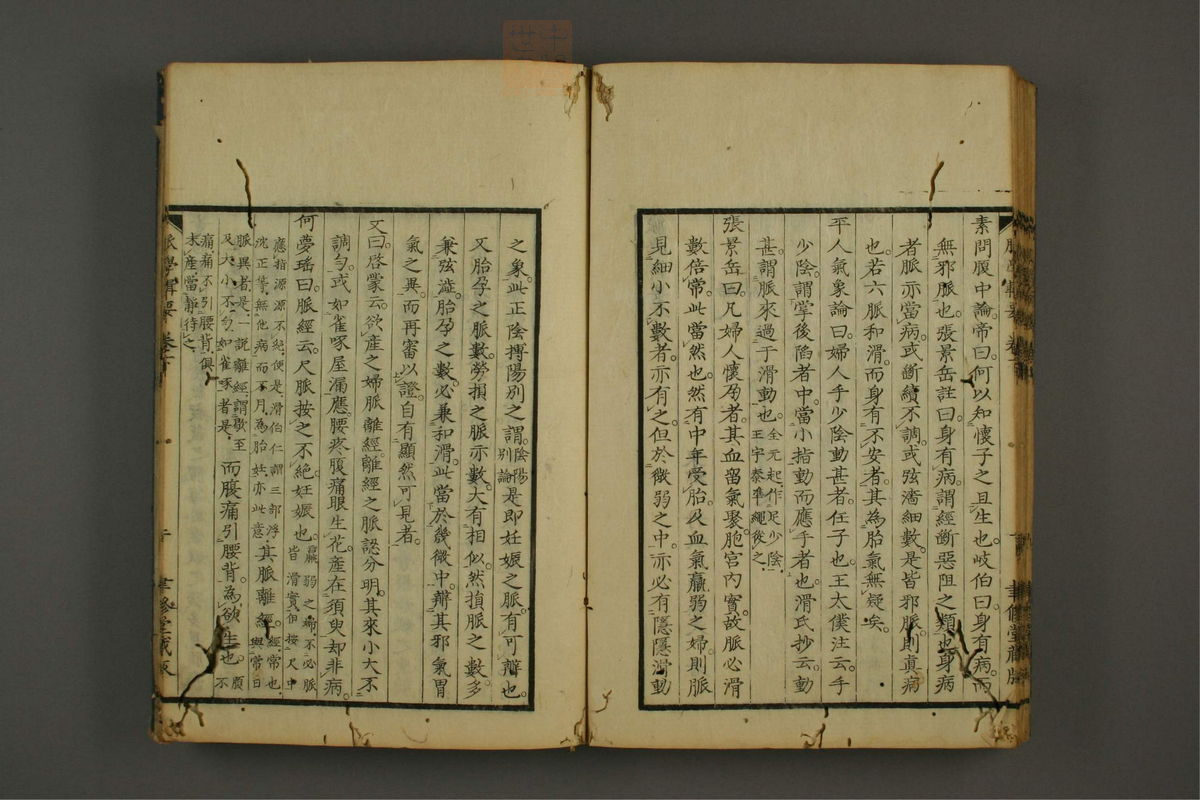 素問腹中論帝曰何以知懷子之且生也岐伯曰身有病而
無邪脈也張景岳註曰身有病謂經斷惡阻之類也身病
者脈亦當病或斷續不調或弦濇細數是皆邪脈則眞病
也若六脈和滑而身有不安者其為胎氣無疑矣
平人氣象論曰婦人手少陰動甚者任子也王太僕注云手
少陰謂掌後陷者中當小指動而應手者也滑氏抄云動
甚謂脈來過于滑動也全元起作足少陰
王宇泰準繩從之
張景岳曰凡婦人懷孕者其血留氣聚胞宮內實故脈必滑
數倍常此當然也然有中年受胎及血氣羸弱之婦則脈
見細小不數者亦有之但於微弱之中亦必有隱隱滑動
之象此正陰搏陽別之謂陰陽
別論是即妊娠之脈有可辯也
又胎孕之脈數勞損之脈亦數大有相似然損脈之數多
兼弦澁胎孕之數必兼和滑此當於幾微中辯其邪氣胃
氣之異而再審以證自有顯然可見者
又曰啓蒙云欲產之婦脈離經離經之脈認分明其來小大不
調勻或如雀啄屋漏應腰疼腹痛眼生花產在須臾却非病
何夢瑶曰脈經云尺脈按之不絕妊娠也羸弱之婦不必脈
皆滑實但按尺中
應指源源不絕便是滑伯仁謂三部浮
沈正等無他病而不月為胎妊亦此意其脈離經經常也
與常日
脈異者是一說離經謂歇至
及大小不勻如雀啄者是而腹痛引腰背為欲生也腹
不
痛痛不引腰背俱
未產當靜待之
脈學輯要 卷下
聿修堂藏版